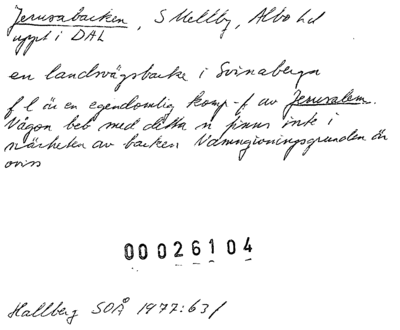 Jerusabacken, S Mellby, Albo hd
uppt i DAL
en landsvägsbacke i Svinaberga
f l är en egendomlig komp-f av Jerusalem.
Någon beb med detta n finns inte i
närheten av backen Namngivningsgrunden är
oviss
00026104
Hallberg SOÅ 1977:63/